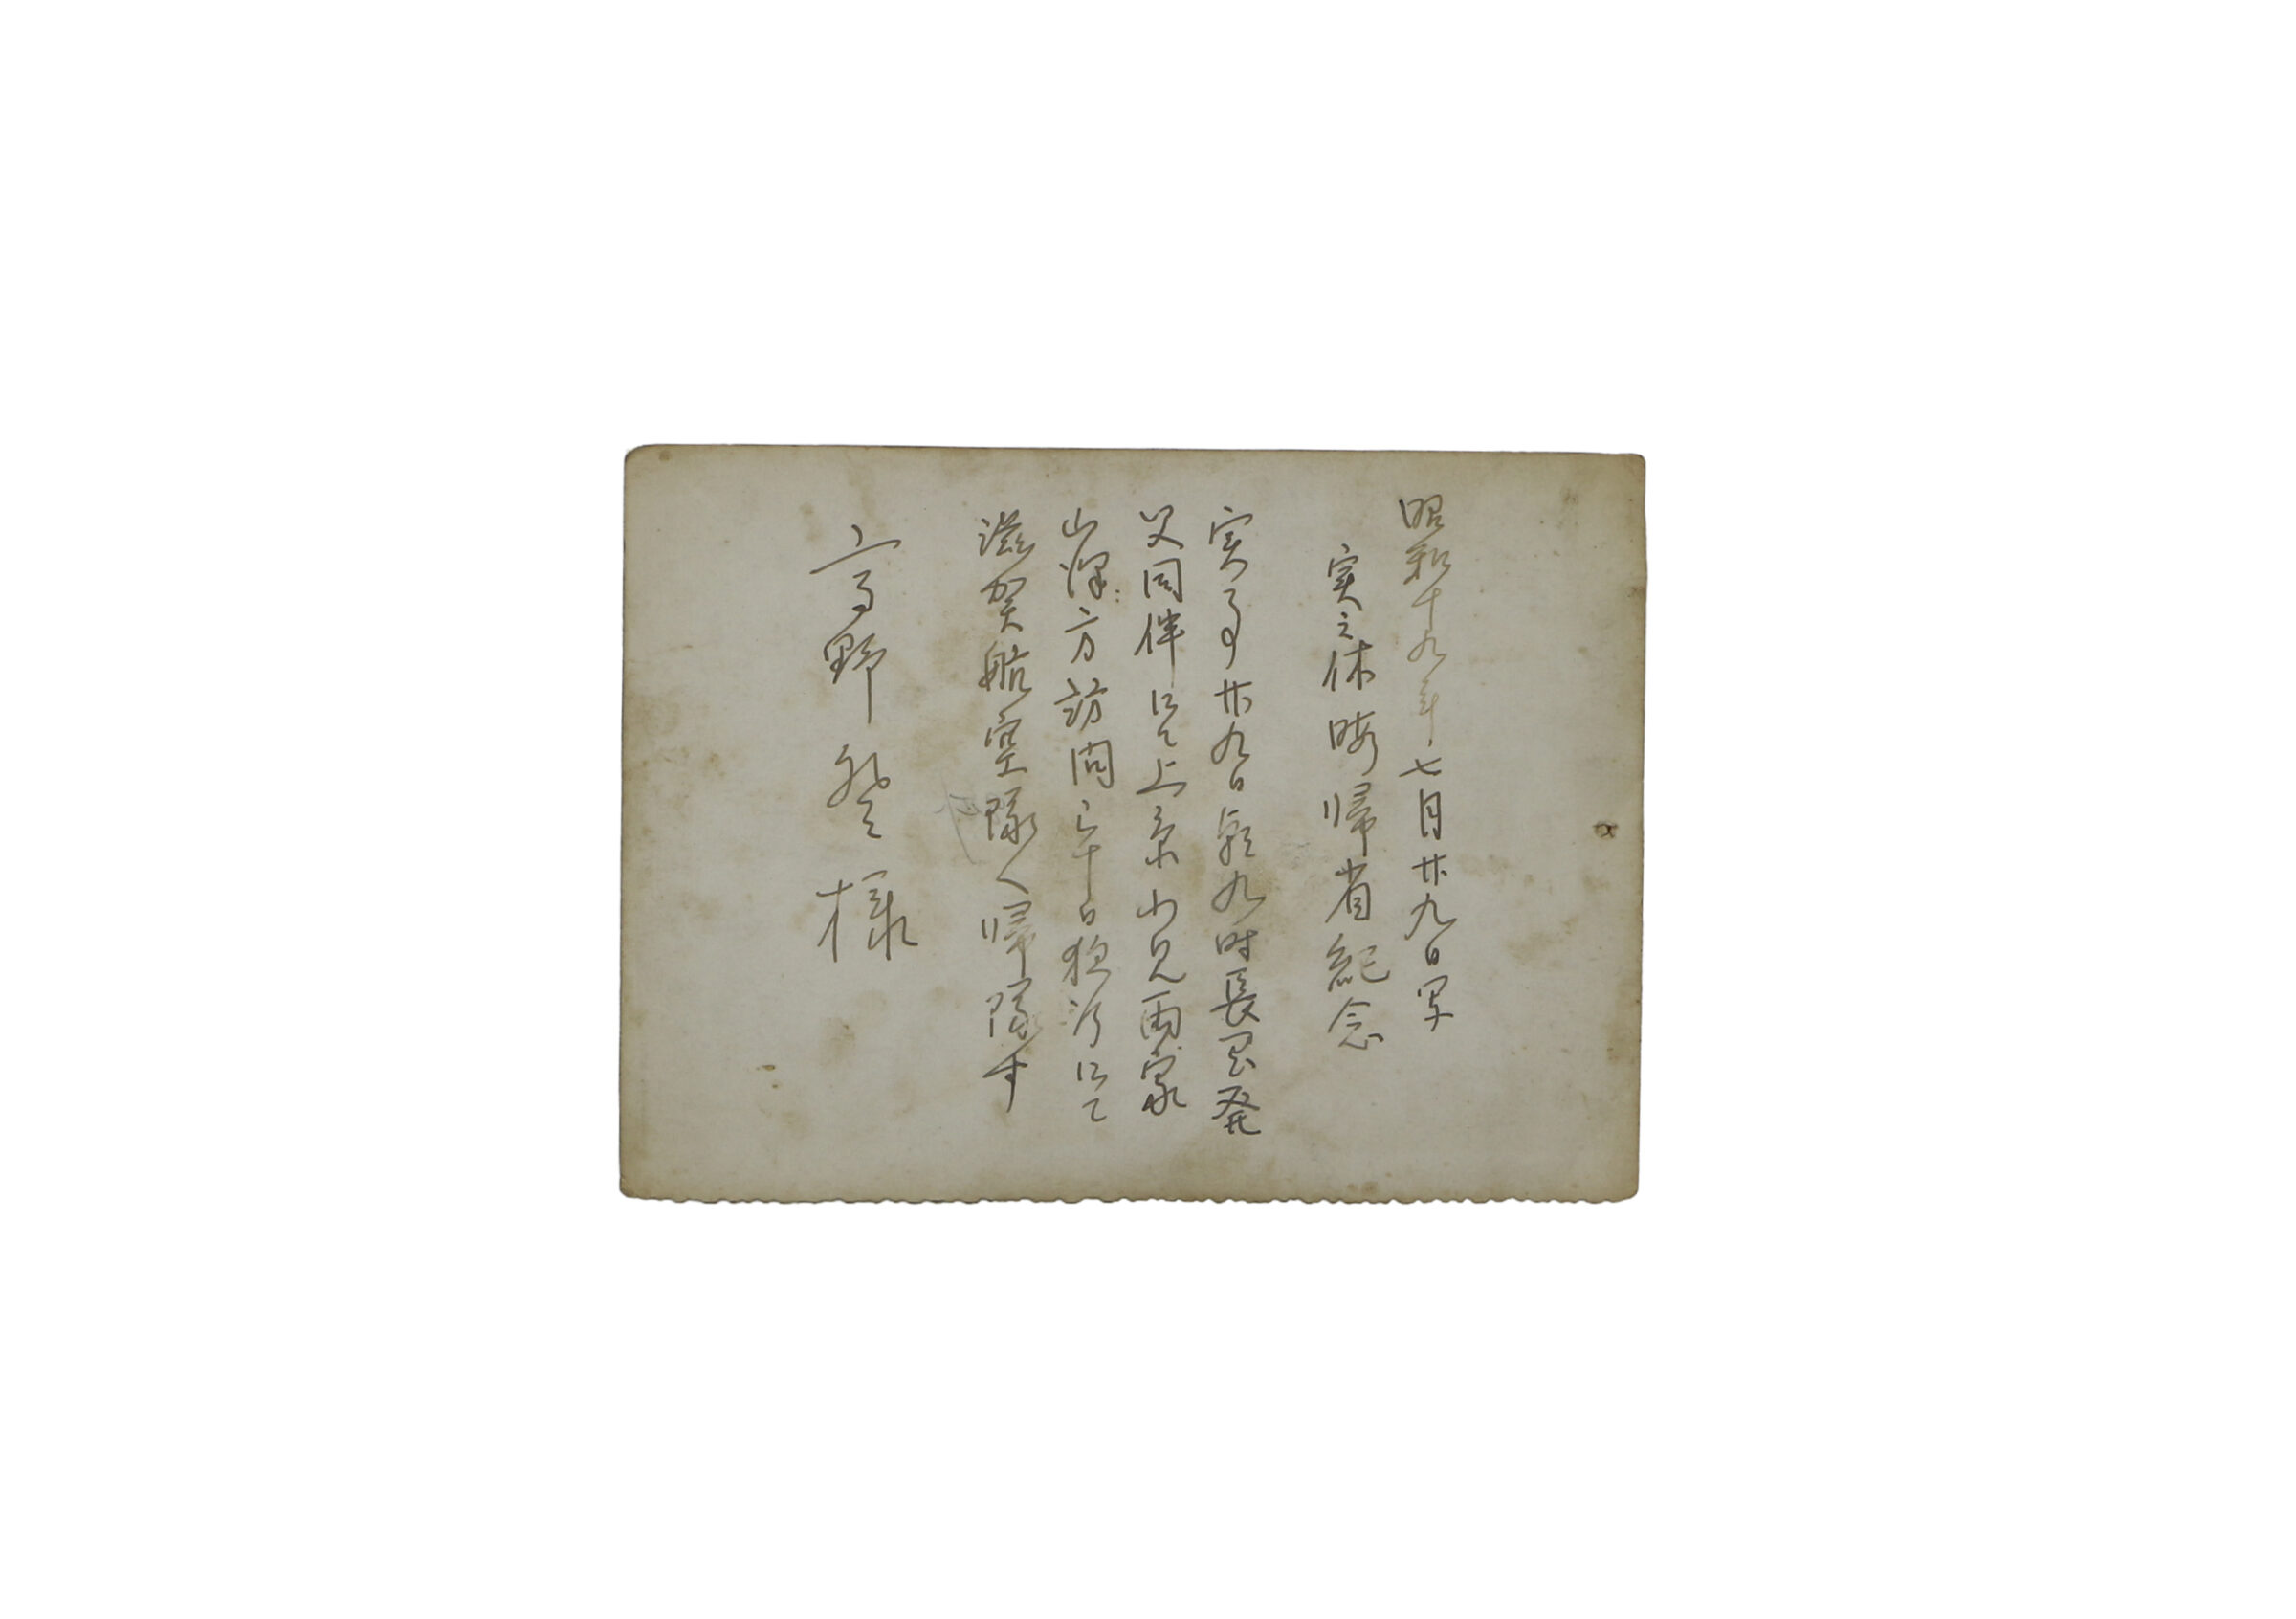 昭和十九年七月廿九日写
実之休暇帰省紀念
実事廿九日朝九時長岡発
父同伴にて上京小見両家
山澤方訪問三十日独行にて
滋賀航空隊へ帰隊す
高野 様